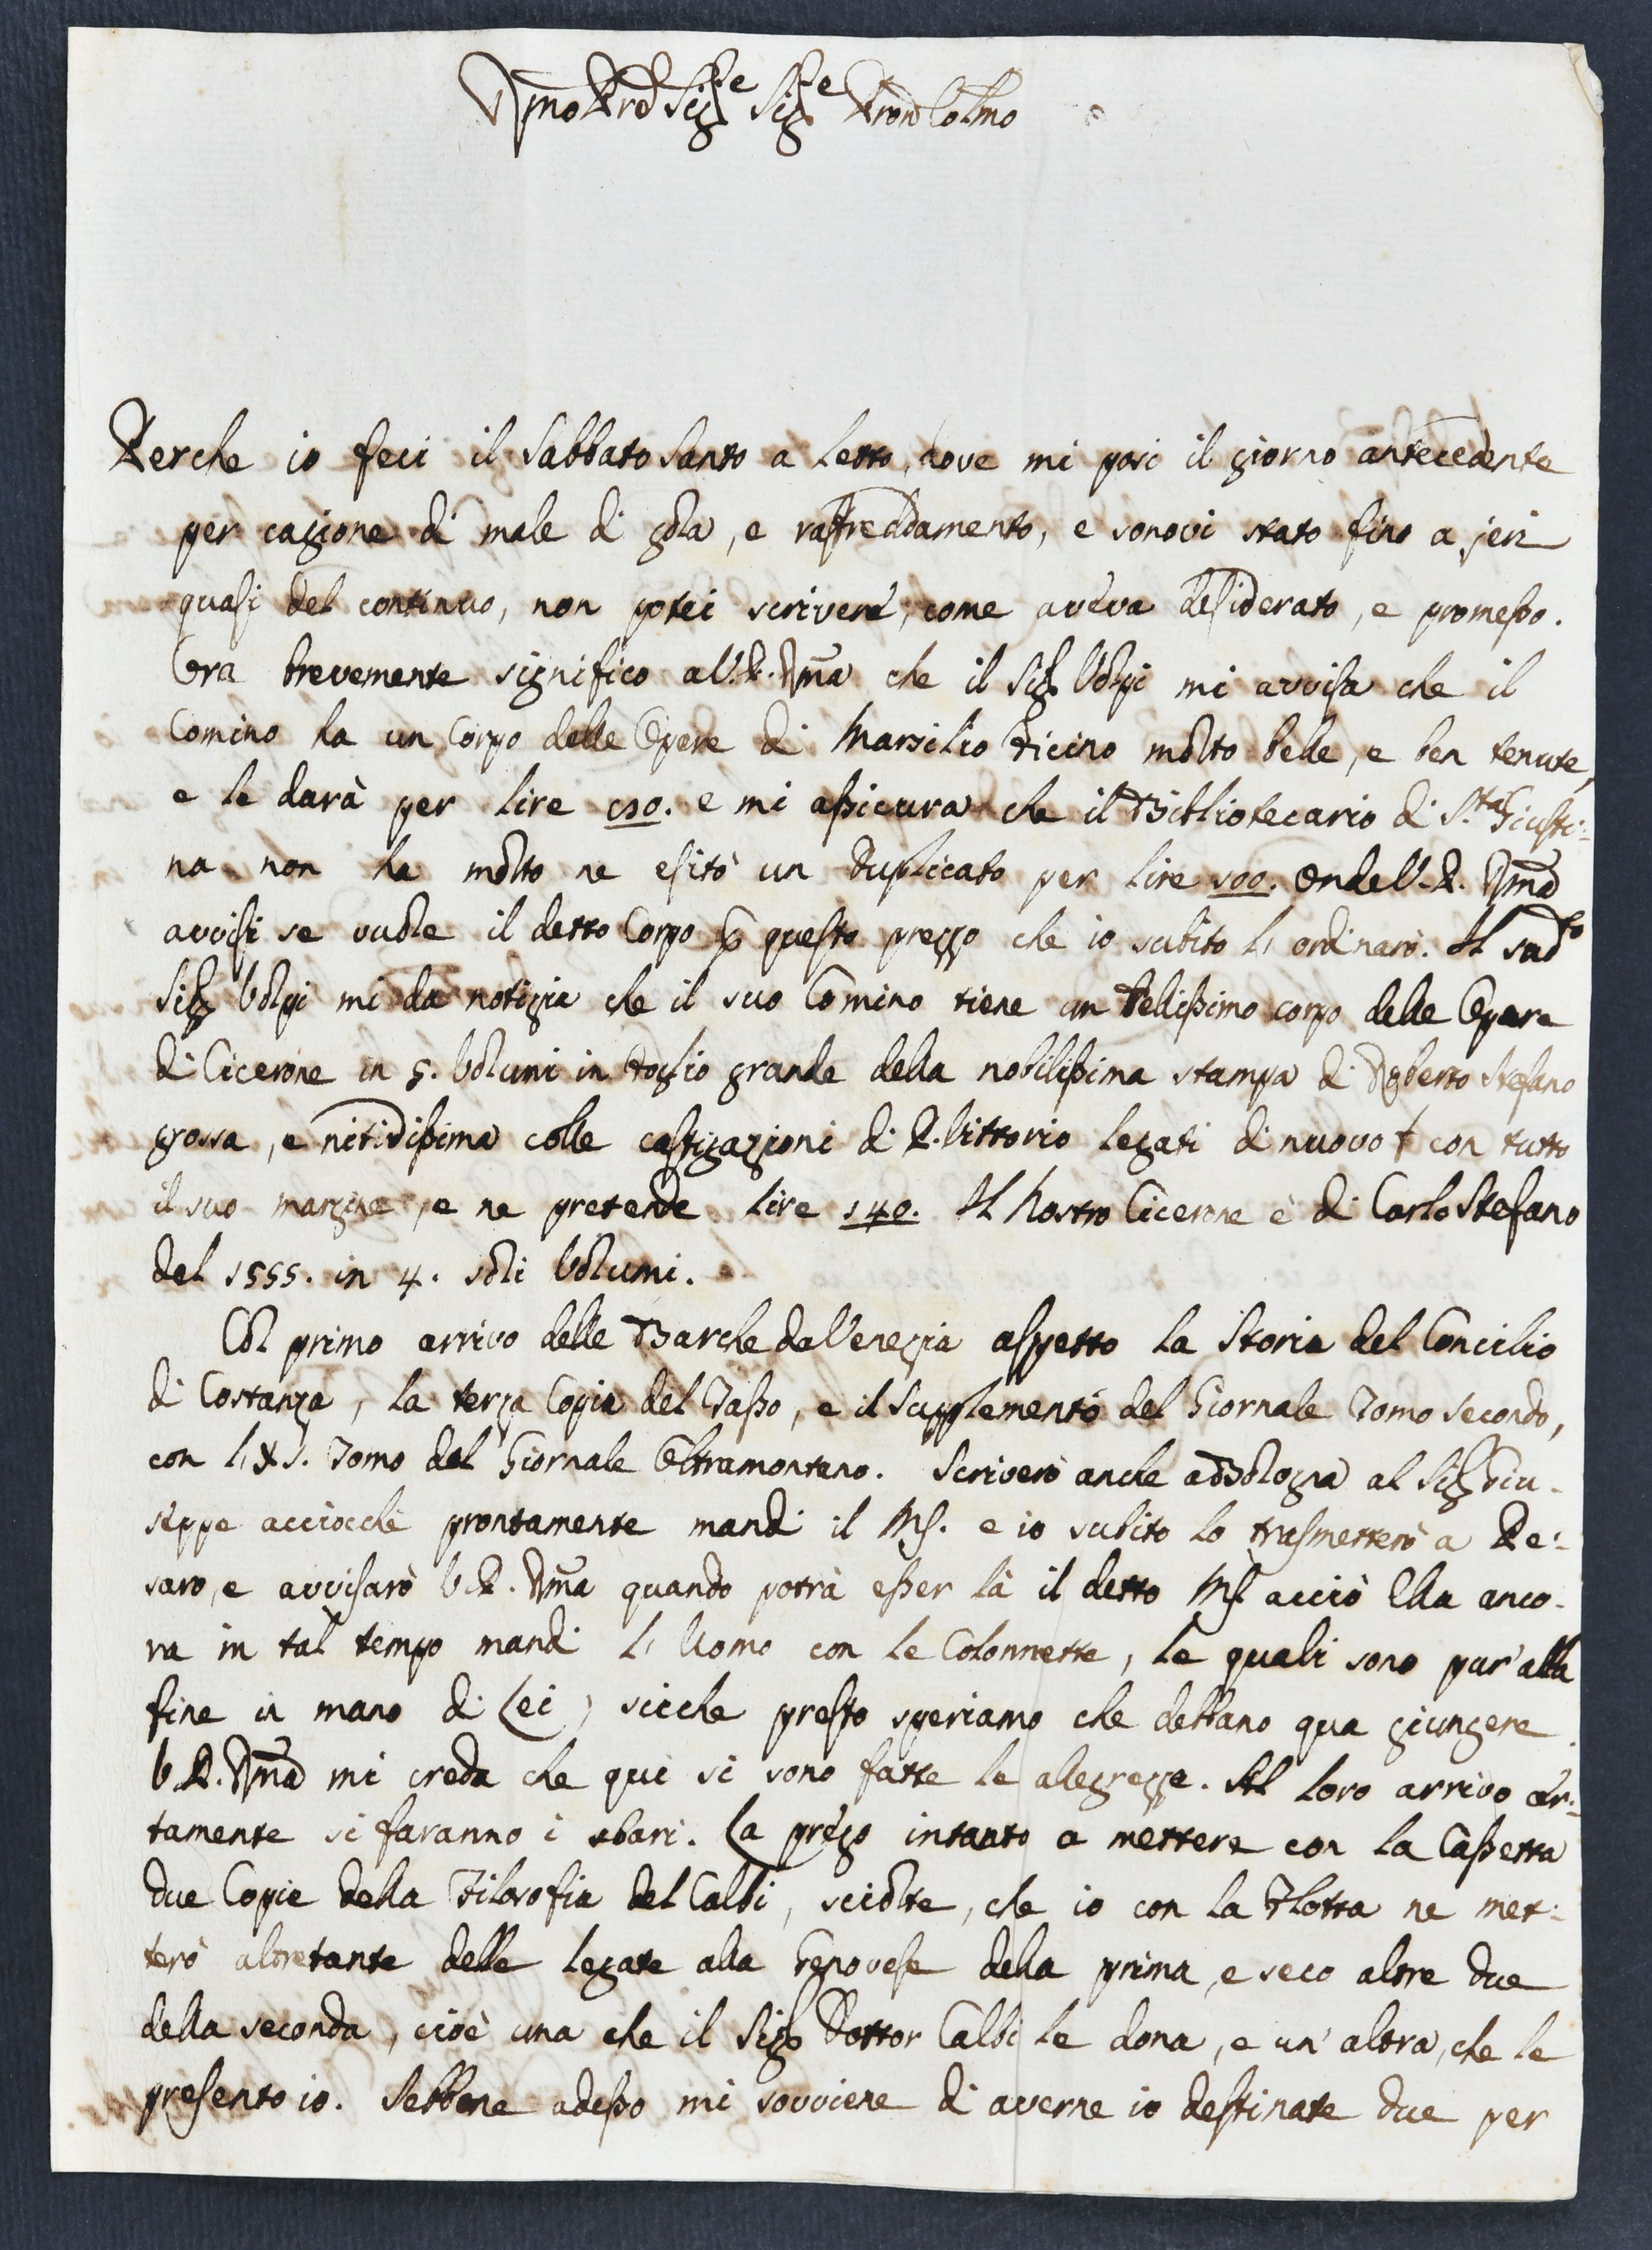 Rmo Pre Sigre Sigre Pron Colmo
Perche io feci il Sabbato Santo a letto, dove mi posi il giorno antecedente
per cagione di male di gola, e raffreddamento, e sonovi stato fino a jeri
quasi del continuo, non potei scrivere, come aveva desiderato, e promesso.
Ora brevemente significo a V. P. Rma che il Sigr Volpi mi avvisa che il
Comino ha un Corpo delle Opere di Marsilio Ficino molto belle, e ben tenute,
e le darà per lire 110. e mi assicura che il Bibliotecario di S.ta Giusti:
na non ha molto ne esitò un duplicato per lire 100. Onde V. P. Rma
avvisi se vuole il detto Corpo p questo prezzo che io subito l'ordinarò. Il sudto
Sigr Volpi mi da notizia che il suo Comino tiene un bellissimo corpo delle Opere
di Cicerone in 5. Volumi in foglio grande della nobilissima stampa di Roberto Stefano
grossa, e nitidissima colle castigazioni di P. Vittorio legati di nuovo + con tutto
il suo margine, e ne pretende lire 140. Il nostro Cicerone è di Carlo Stefano
del 1555. in 4. soli Volumi.
Col primo arrivo delle Barche da Venezia aspetto la Storia del Concilio
di Costanza, la terza Copia del Tasso, e il Supplemento del Giornale Tomo secondo,
con l' Tomo del Giornale Oltramontano. Scriverò anche a Bologna al Sigr Giu-
seppe acciocchè prontamente mandi il Ms. e io subito lo trasmetterò a Pe:
saro, e avvisarò V. P. Rma quando potrà esser là il detto Ms. acciò Ella anco-
ra in tal tempo mandi l'Uomo con le Colonnette, le quali sono pur'alla
fine in mano di Lei, sicche presto speriamo che debbano qua giungere.
V. P. Rma mi creda che qui si sono fatte le alegrezze. Al loro arrivo cer:
tamente si faranno i sbari. La prego intanto a mettere con la Cassetta
due Copie della Filosofia del Calbi, sciolte, che io con la Flotta ne met:
terò altretante delle legate alla Genovese della prima, e seco altre due
della seconda, cioè una che il Sigr Dottor Calbi le dona, e un'altra, che le
presento io. Sebbene adesso mi sovviene di averne io destinate due per